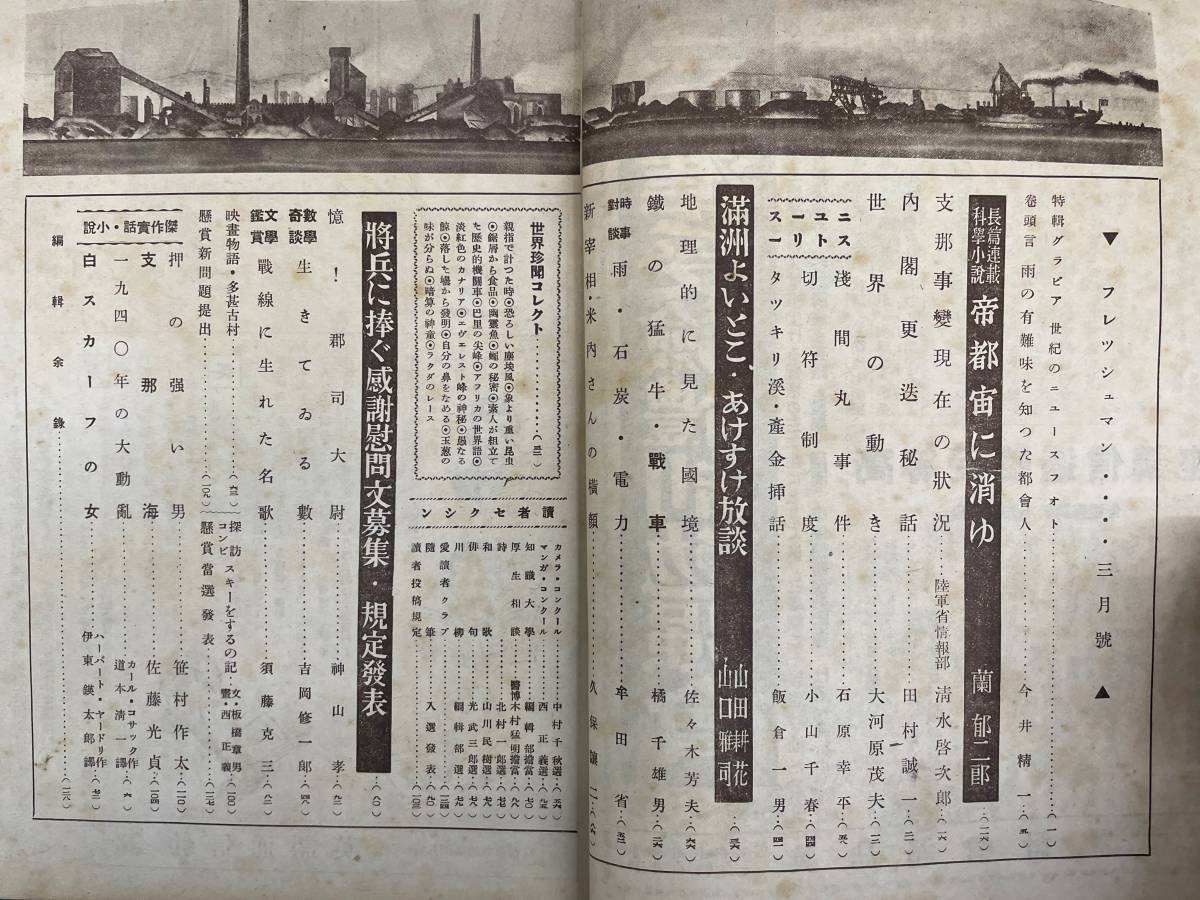 ▼フレツシュマン・・・・三月號▲
特輯グラビア 世紀のニユースフオト…(一)
卷頭言 雨の有難味を知つた都會人…今井精一…(五)
長篇連載科學小說 帝都宙に消ゆ 蘭郁二郎…(一一六)
支那事變現在の狀況…陸軍省情報部 淸水啓次郎…(一六)
內閣更迭秘話…田村誠一…(二一)
世界の動き…大河原茂夫…(一二)
ニユースストーリー
淺間丸事件…石原幸平…
切符制度…小山千春…(四四)
タツキリ溪・產金揷話…飯倉一男…(四一)
滿洲よいとこ、あけすけ放談 山田耕花 山口雅司…
地理的に見た國境…佐々木芳夫…
鐵の猛牛・戰車…橘千雄男…
時事對談 雨・石炭・電力…牟田省…
新宰相・米內さんの橫顏…久保讓二…
世界珍聞コレクト…
親指で計つた時◉恐ろしい塵埃風◉象より重い昆虫
◉鋸屑から食品◉幽靈魚◉鰻の秘密◉素人が組立て
た歷史的機關車◉巴里の尖峰◉アフリカの世界語◉
淡紅色のカナリア◉エヴエレスト峰の神秘◉愚なる
鯨◉落した場から發明◉自分の鼻をなめる◉玉葱の
味が分らぬ◉暗算の神童◉ラクダのレース
讀者セクシン
カメラ・コンクール…中村千秋選…
マンガ・コンクール…西正義選…
知識大學…編輯部擔當…
厚生相談…醫博木村猛明擔當…
詩…北村一郎選…
和歌…山川民樹選…
俳句…光武三郎選…
川柳…編輯部選…
愛讀者クラブ…
隨筆…入選發表…
讀者投稿規定…
將兵に捧ぐ感謝慰問文募集・規定發表…(八〇)
憶!郡司大尉…神山孝…
數學奇談 生きてゐる數…吉岡修一郎…
文學鑑賞 戰線に生れた名歌…須藤克三…
映畫物語・多甚古村…
探訪コンビ スキーをするの記 文・板橋章男 畫・西正義…(一〇〇)
懸賞新問題提出…
懸賞當選發表…
傑作實話・小說
押の强い男…笹村作太…(一一〇)
支那海…佐藤光貞…(一〇四)
一九四〇年の大動亂…カール・コサック作 道本淸一譯…
白スカーフの女…ハーバート・ヤードリ作 伊東鍈太郎譯…
編輯余錄…(一三八)